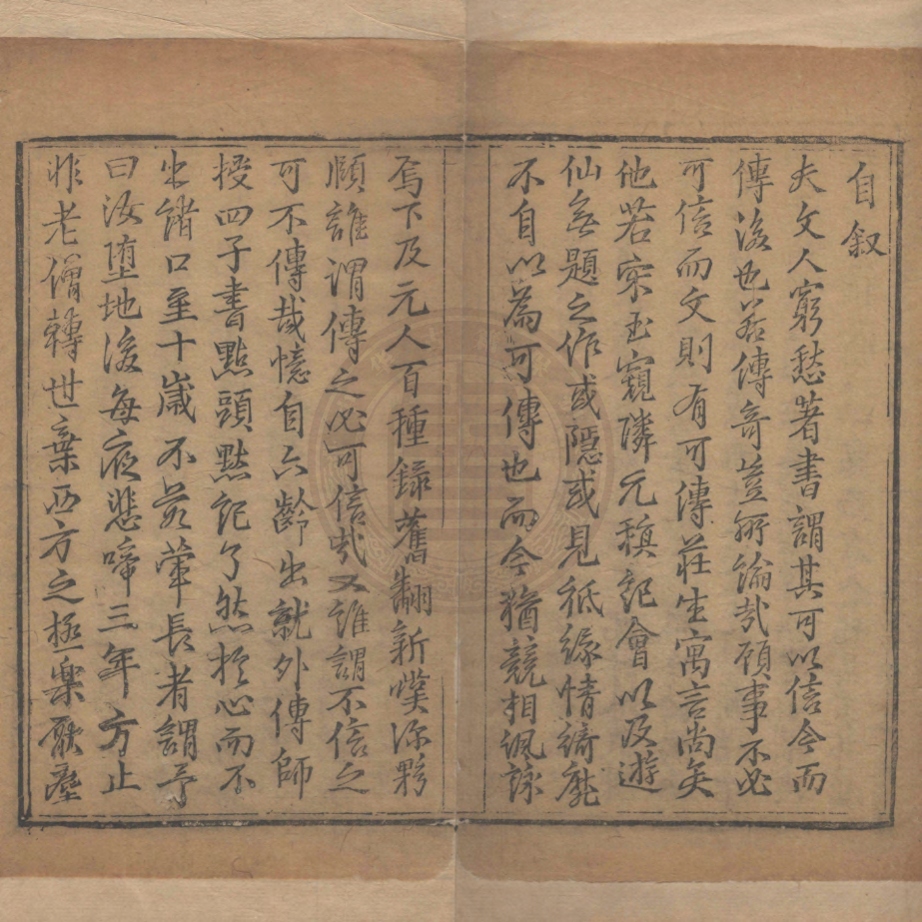 自叙
夫文人窮愁著書謂其可以信今而
傳後也若傳奇豈所論哉顧事不必
可信而文則有可傳莊生寓言尚矣
他若宋玉窺隣元稹記會以及遊
仙無題之作或隱或見祇緣情綺靡
不自以為可傳也而今猶競相諷詠
焉下及元人百種錄舊翻新嘆添夥
頤誰謂傳之必可信哉又誰謂不信之
可不傳哉憶自六齡出就外傳師
授四子書點頭默記了然於心而不
出諸口至十歲不茹葷長者謂予
曰汝墮地後每夜悲啼三年方止
非老僧轉世棄西方之極樂厭塵